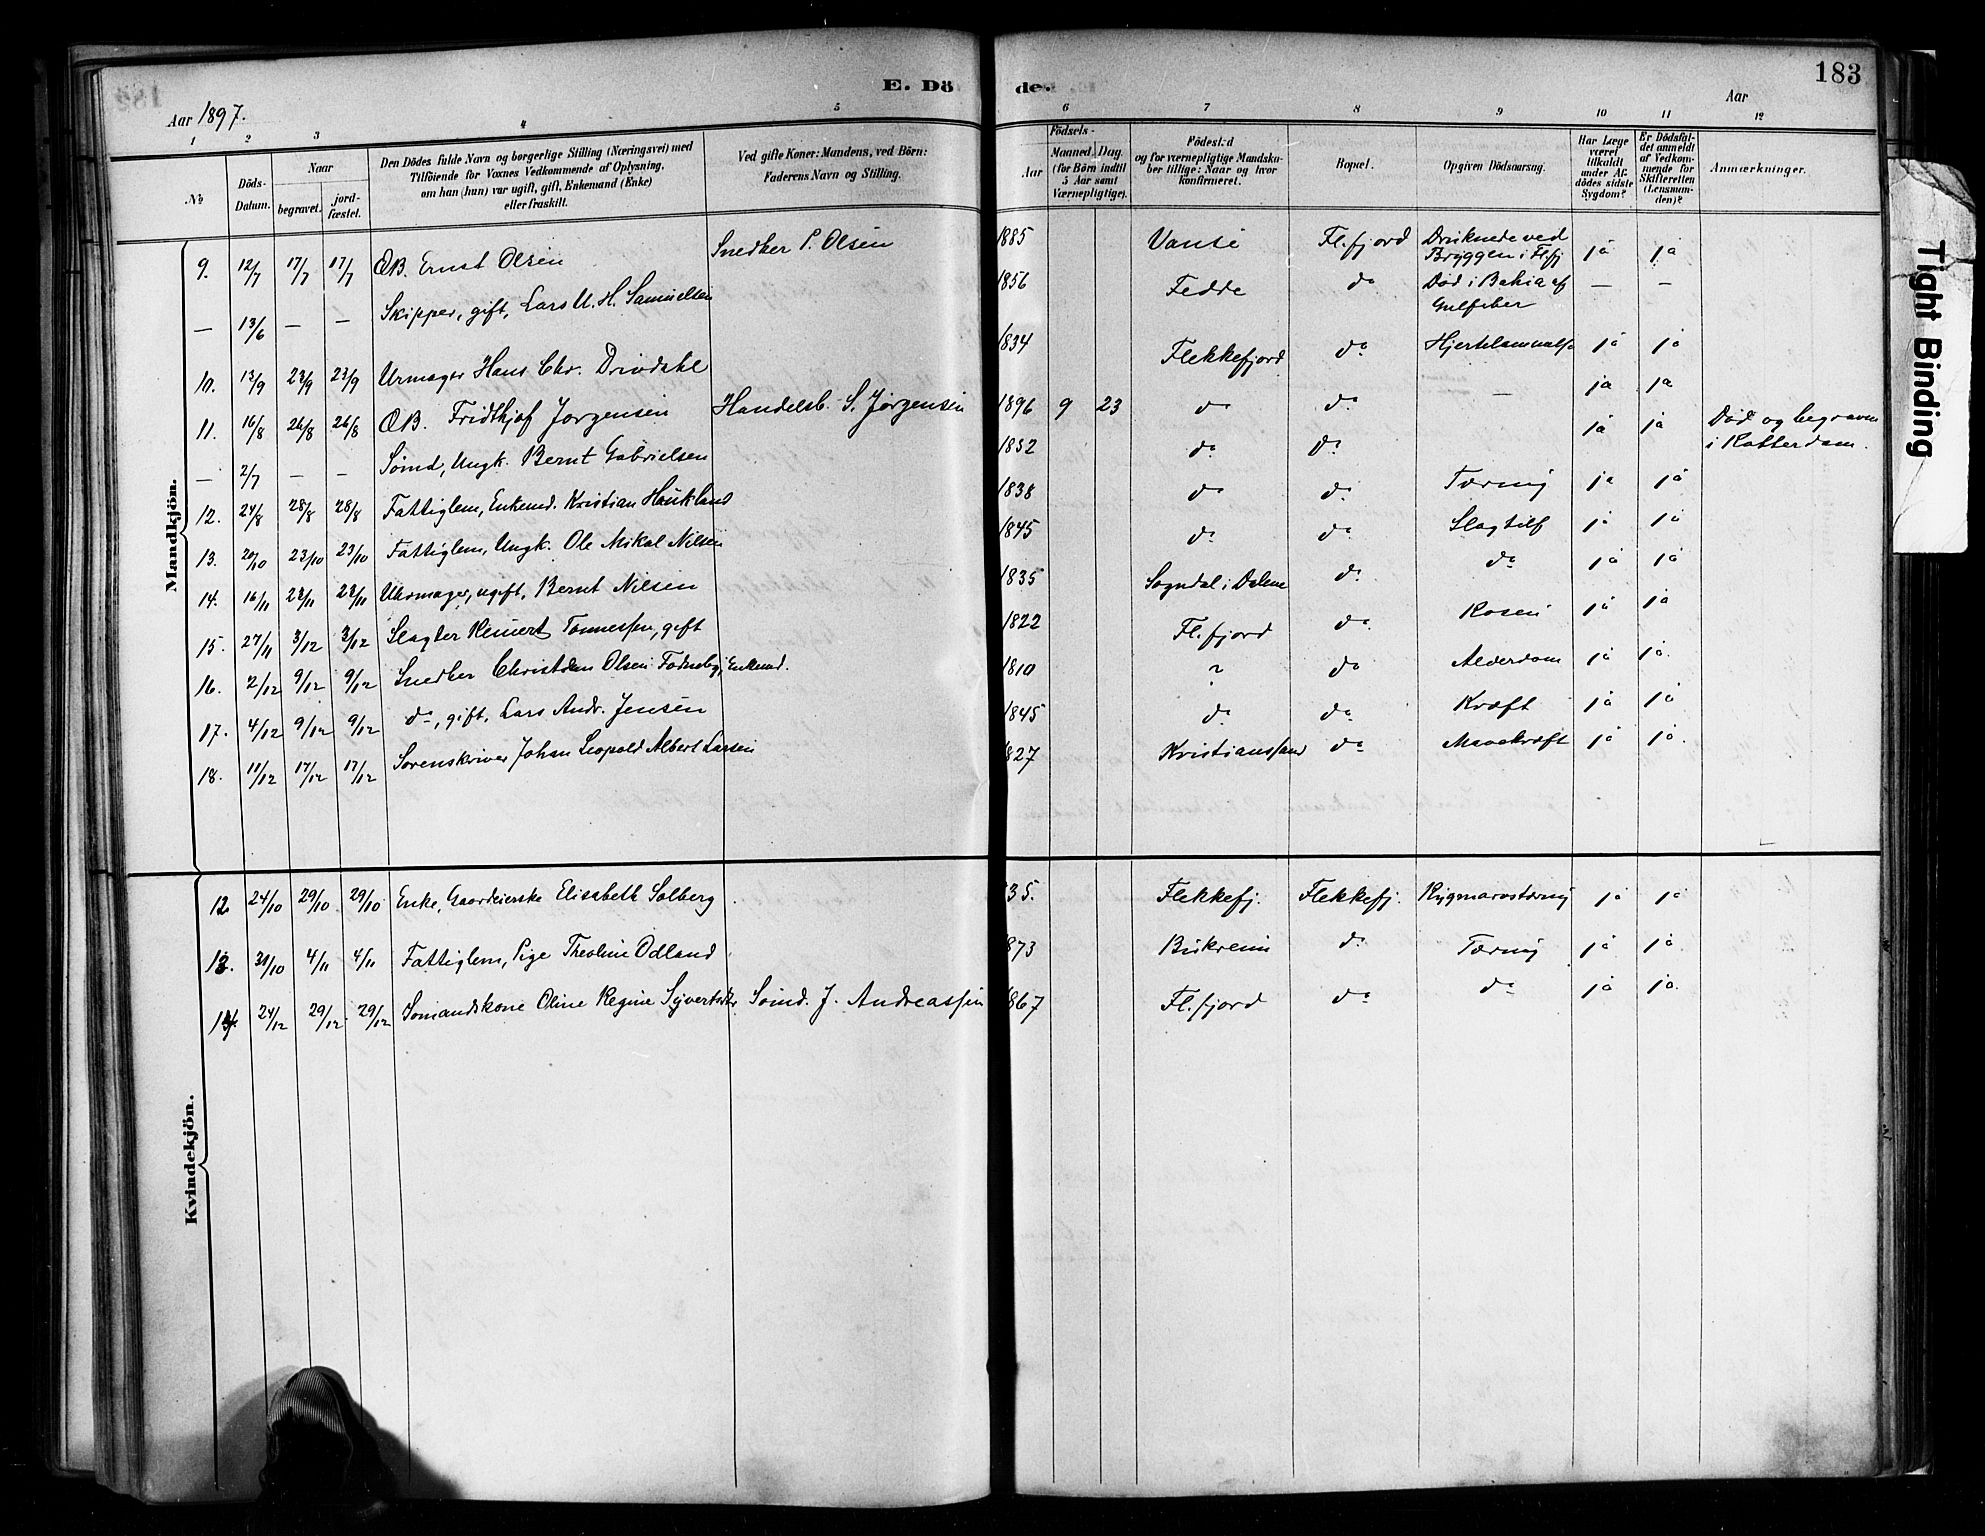 E. Döde.
183
Aar 1897.
Aar
1 2 3 4 5 6 7 8 9 10 11 12
№
Döds-Datum.
Naar
begravet.
jord-fæstet.
Den Dödes fulde Navn og borgerlige Stilling (Næringsvei) med
Tilföiende for Voxnes Vedkommende af Oplysning,
om han (hun) var ugift, gift, Enkemand (Enke)
eller fraskilt.
Ved gifte Koner: Mandens, ved Börn:
Faderens Navn og Stilling.
Födsels-
Aar
Maaned. Dag.
(for Börn indtil
5 Aar samt
Værnepligtige).
Födested
og for værnepligtige Mandska-
ber tillige: Naar og hvor
konfirmeret.
Bopæl.
Opgiven Dödsaarsag.
Har Læge
været
tilkaldt
under Af-
dödes sidste
Sygdom?
Er Dödsfal-
det anmeldt
af Vedkom-
mende for
Skifteretten
(Lensman-
den)?
Anmærkninger.
Mandkjön.
9. 12/7 17/7 17/7 ÆB. Ernst Olsen Snedker P. Olsen 1885 Vanse Fl.fjord Druknede ved Bryggen i Fl.fj ja ja
— 13/6 — — Skipper, gift, Lars U. H. Samuelsen 1856 Fedde do Død i Bahia af Gulfeber — —
10. 13/9 23/9 23/9 Urmager Hans Chr. Drivdahl 1834 Flekkefjord do ja ja
11. 16/8 26/8 26/8 ÆB. Fridthjof Jørgensen Handelsb. S. Jørgensen 1896 9 23 do do — ja ja
— 2/7 — — Sømd, Ungk. Bernt Gabrielsen 1852 do do ja ja Død og begraven i Rotterdam.
12. 24/8 28/8 28/8 Fattiglem, Enkemd. Kristian Haukland 1838 do do Tæring ja ja
13. 20/10 23/10 23/10 Fattiglem, Ungk. Ole Mikal Nilsen 1845 do do Slagtilf ja ja
14. 16/11 23/11 23/11 Uhrmager, ugift, Bernt Nilsen 1835 Sogndal i Dalene do do ja ja
15. 27/11 3/12 3/12 Slagter Reinert Tønnessen, gift 1822 Fl.fjord do Rosen ja ja
16. 2/12 9/12 9/12 Snedker Christen Olsen Enkemd. 1810 do Alderdom ja ja
17. 4/12 9/12 9/12 do, gift, Lars Andr. Jensen 1845 do do Kræft ja ja
18. 11/12 17/12 17/12 Sorenskriver Johan Leopold Albert Larsen 1827 Kristianssand do Mavekræft ja ja.
Kvindekjön.
12 24/10 29/10 29/10 Enke, Gaardeierske Elisabeth Solberg 35. Flekkefj. Flekkefj. Rygmarvstæring ja ja
13. 31/10 4/11 4/11 Fattiglem, Pige Theoline Odland 873 Birkrem do Tæring ja ja
14. 24/12 29/12 29/12 Sømandskone Oline Regine Syvertsdtr Sømd. J. Andreassen 867 Fl.fjord do do ja ja
Tight Binding